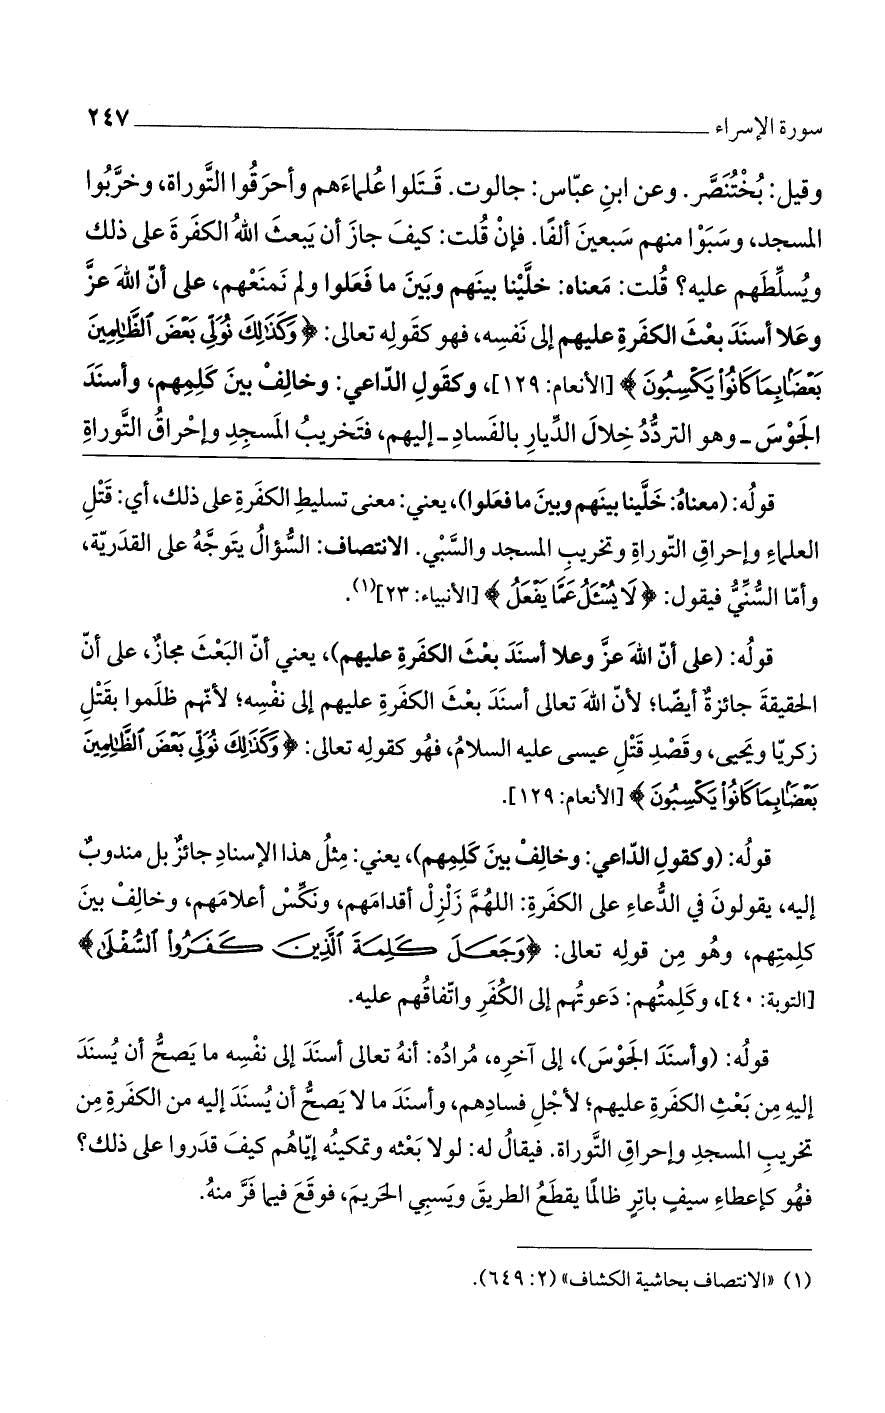 سورة الإسراء ٢٤٧
وقيل: بُخْتُنَصَّر. وعن ابنِ عبّاس: جالوت. قَتَلوا عُلماءَهم وأحرَقُوا التَّوراة، وخرَّبُوا
المسجد، وسَبَوْا منهم سَبعينَ ألفًا. فإنْ قُلت: كيفَ جازَ أن يَبعثَ اللهُ الكفَرةَ على ذلك
ويُسلِّطَهم عليه؟ قُلت: مَعناه: خلَّيْنا بينَهم وبَينَ ما فَعَلوا ولم نَمنَعْهم، على أنّ اللهَ عزَّ
وعَلا أسنَدَ بعْثَ الكفَرةِ عليهم إلى نَفسِه، فهو كقَولِه تعالى: ﴿وَكَذَٰلِكَ نُوَلِّي بَعْضَ ٱلظَّٰلِمِينَ
بَعْضًۢا بِمَا كَانُوا۟ يَكْسِبُونَ﴾ [الأنعام: ١٢٩]، وكقَولِ الدّاعي: وخالِفْ بينَ كَلِمِهم، وأسنَدَ
الجَوْسَ ـ وهو التردُّدُ خِلالَ الدِّيارِ بالفَسادِ ـ إليهم، فتَخريبُ المَسجِدِ وإحْراقُ التَّوراةِ
قولُه: (معناهُ: خَلَّينا بينَهم وبينَ ما فعَلوا)، يعني: معنى تسليطِ الكفَرةِ على ذلك، أي: قَتْلِ
العلماءِ وإحراقِ التّوراةِ وتخريبِ المسجد والسَّبْي. الانتصاف: السُّؤالُ يتَوجَّهُ على القدَريّة،
وأمّا السُّنِّيُّ فيقول: ﴿لَا يُسْـَٔلُ عَمَّا يَفْعَلُ﴾ [الأنبياء: ٢٣](١).
قولُه: (على أنّ اللهَ عزَّ وعلا أسنَدَ بعْثَ الكفَرةِ عليهم)، يعني أنّ البَعْثَ مجازٌ، على أنّ
الحقيقةَ جائزةٌ أيضًا؛ لأنّ اللهَ تعالى أسنَدَ بعْثَ الكفَرةِ عليهم إلى نفْسِه؛ لأنّهم ظلَموا بقَتْلِ
زكريّا ويَحيى، وقَصْدِ قَتْلِ عيسى عليه السلامُ، فهُو كقولِه تعالى: ﴿وَكَذَٰلِكَ نُوَلِّي بَعْضَ ٱلظَّٰلِمِينَ
بَعْضًۢا بِمَا كَانُوا۟ يَكْسِبُونَ﴾ [الأنعام: ١٢٩].
قولُه: (وكقولِ الدّاعي: وخالِفْ بينَ كَلِمِهم)، يعني: مِثلُ هذا الإسنادِ جائزٌ بل مندوبٌ
إليه، يقولونَ في الدُّعاءِ على الكفَرةِ: اللهُمَّ زَلْزِلْ أقدامَهم، ونَكِّسْ أعلامَهم، وخالِفْ بينَ
كلِمتِهم، وهُو مِن قولِه تعالى: ﴿وَجَعَلَ كَلِمَةَ ٱلَّذِينَ كَفَرُوا۟ ٱلسُّفْلَىٰ﴾
[التوبة: ٤٠]، وكَلِمتُهم: دَعوتُهم إلى الكُفرِ واتّفاقُهم عليه.
قولُه: (وأسنَدَ الجَوْسَ)، إلى آخرِه، مُرادُه: أنهُ تعالى أسنَدَ إلى نفْسِه ما يَصحُّ أن يُسنَدَ
إليهِ مِن بَعْثِ الكفَرةِ عليهم؛ لأجْلِ فسادِهم، وأسنَدَ ما لا يَصحُّ أن يُسنَدَ إليه من الكفَرةِ مِن
تخريبِ المسجدِ وإحراقِ التَّوراة. فيقالُ له: لولا بَعْثه وتمكينُه إيّاهُم كيفَ قدَروا على ذلك؟
فهُو كإعطاءِ سيفٍ باترٍ ظالمًا يقطَعُ الطريقَ ويَسبي الحَريمَ، فوقَعَ فيما فَرَّ منهُ.
(١) «الانتصاف بحاشية الكشاف» (٢: ٦٤٩).